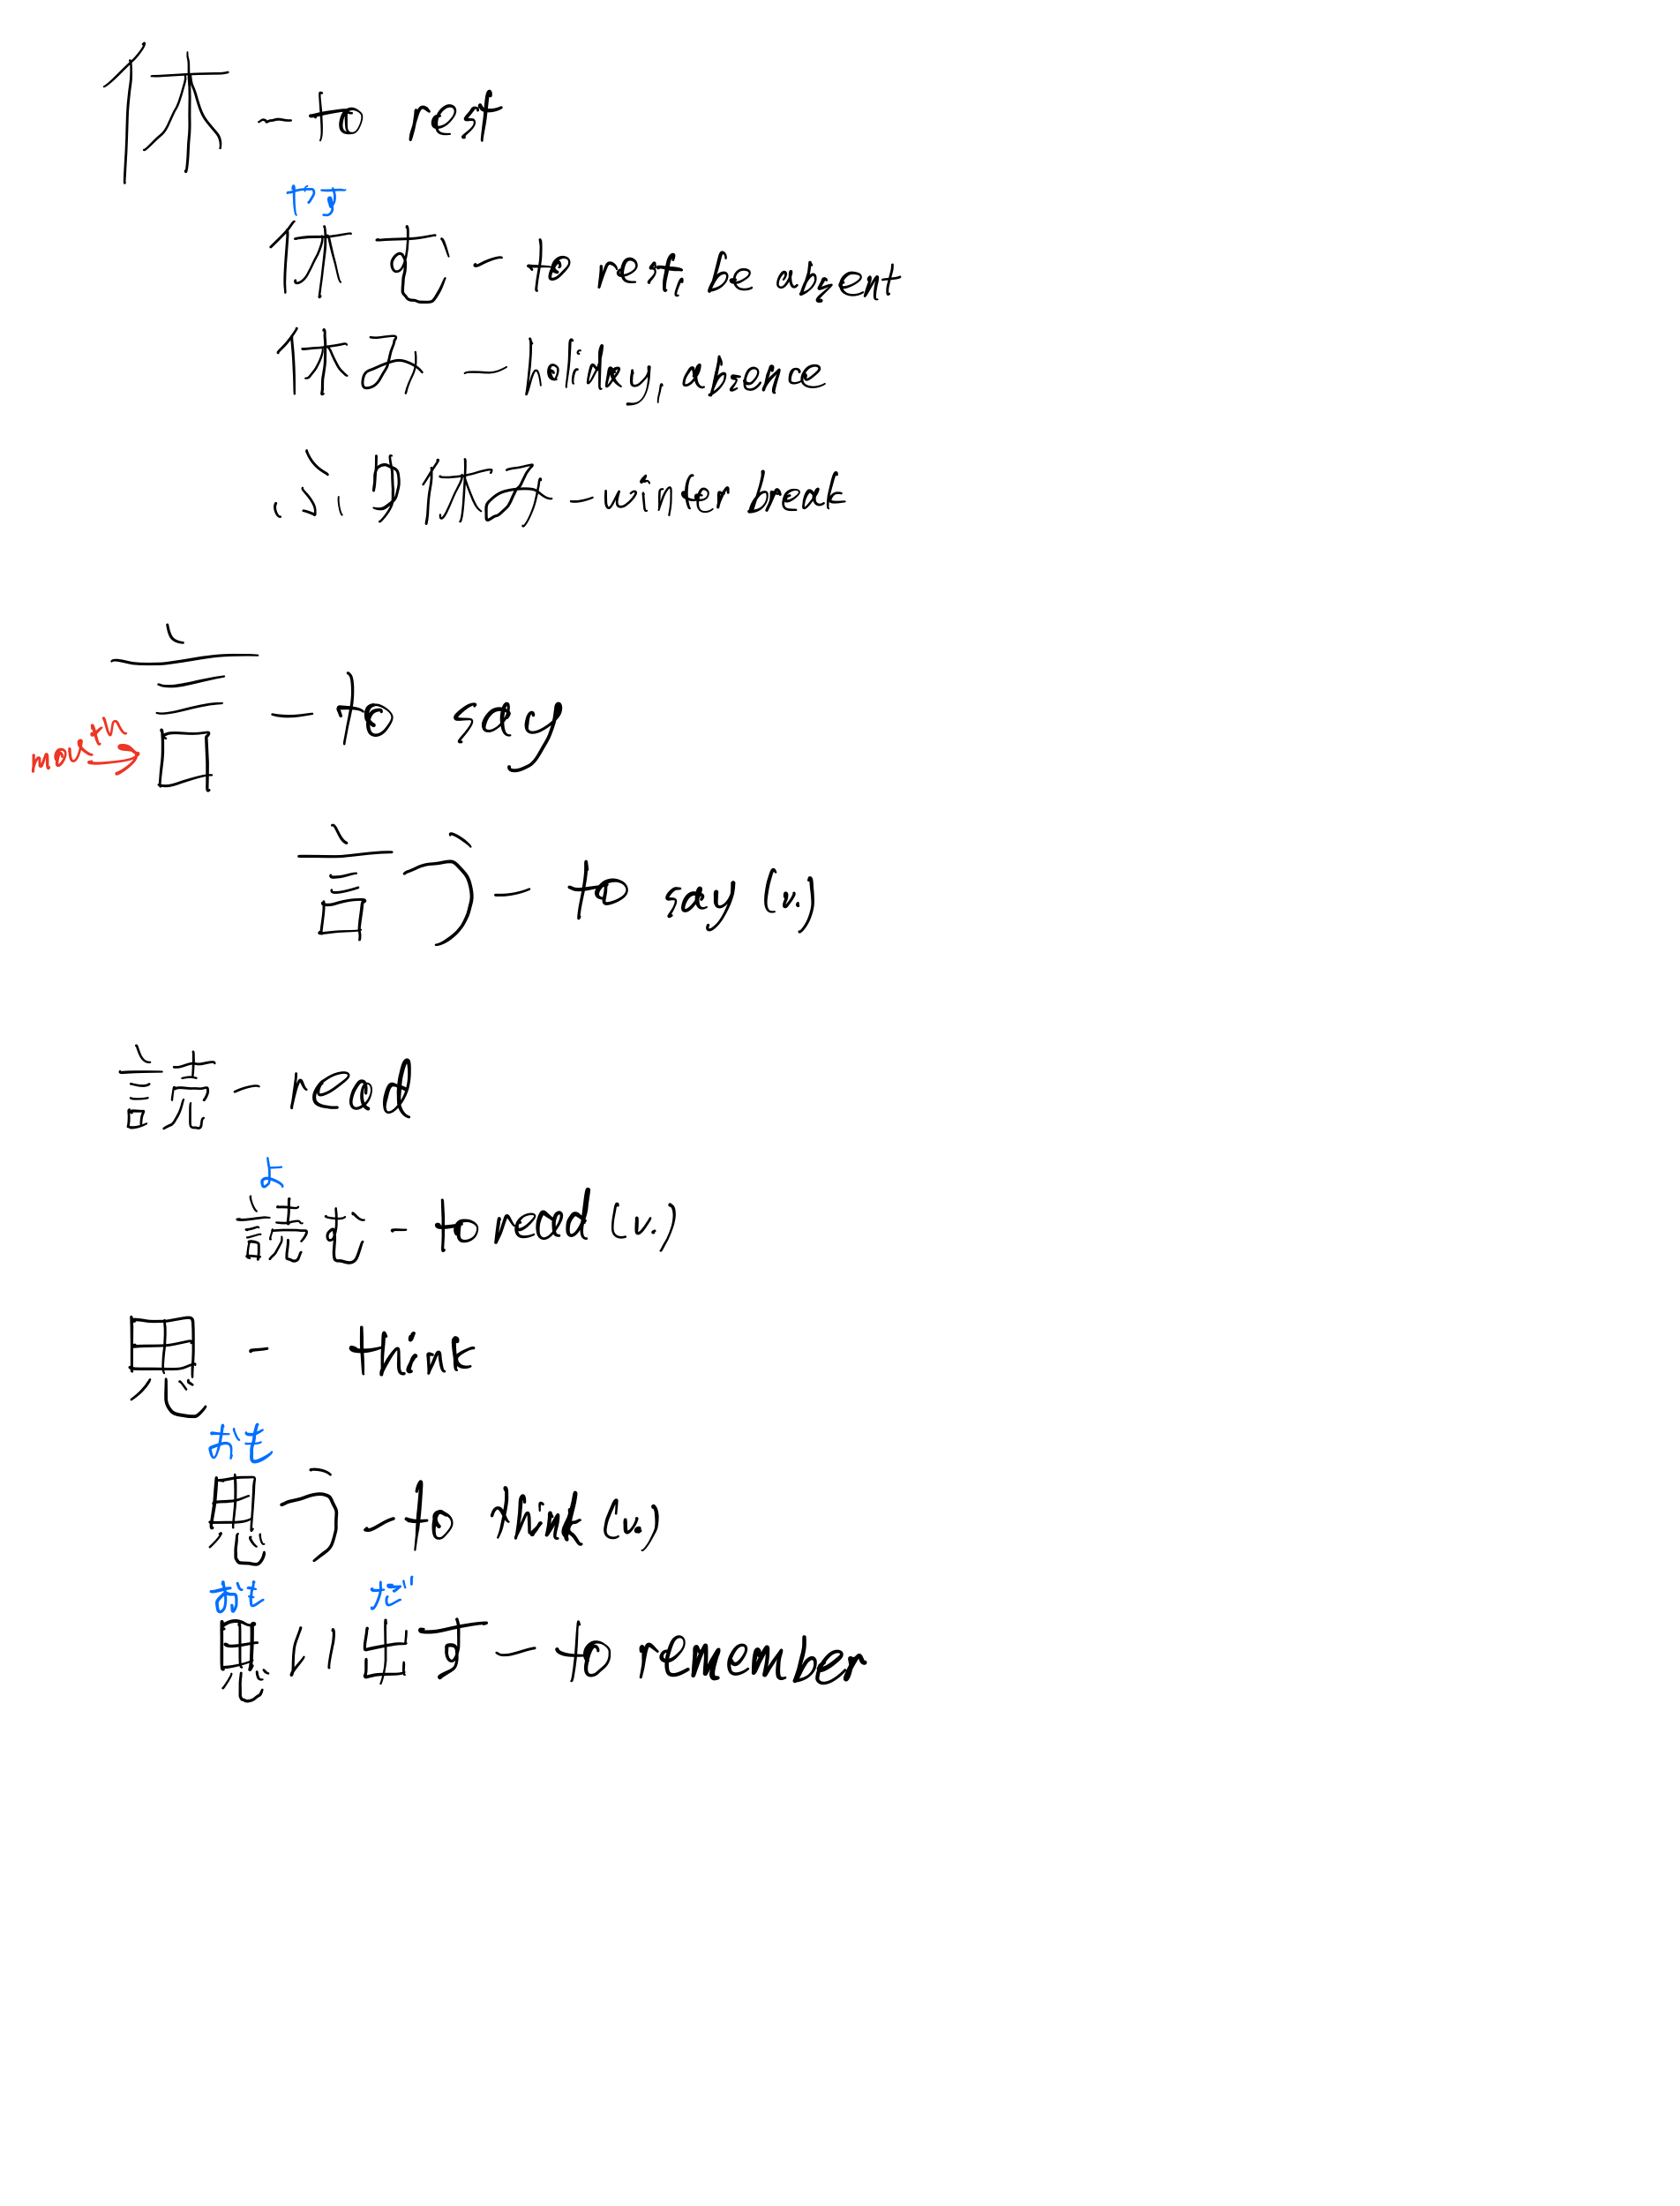 休 – to rest
やす
休む – to rest, be absent
休み – holiday, absence
ふゆ休み – winter break
言 – to say
mouth
言う – to say (v.)
読 – read
よ
読む – to read (v.)
思 – think
おも
思う – to think (v.)
おも だ
思い出す – to remember